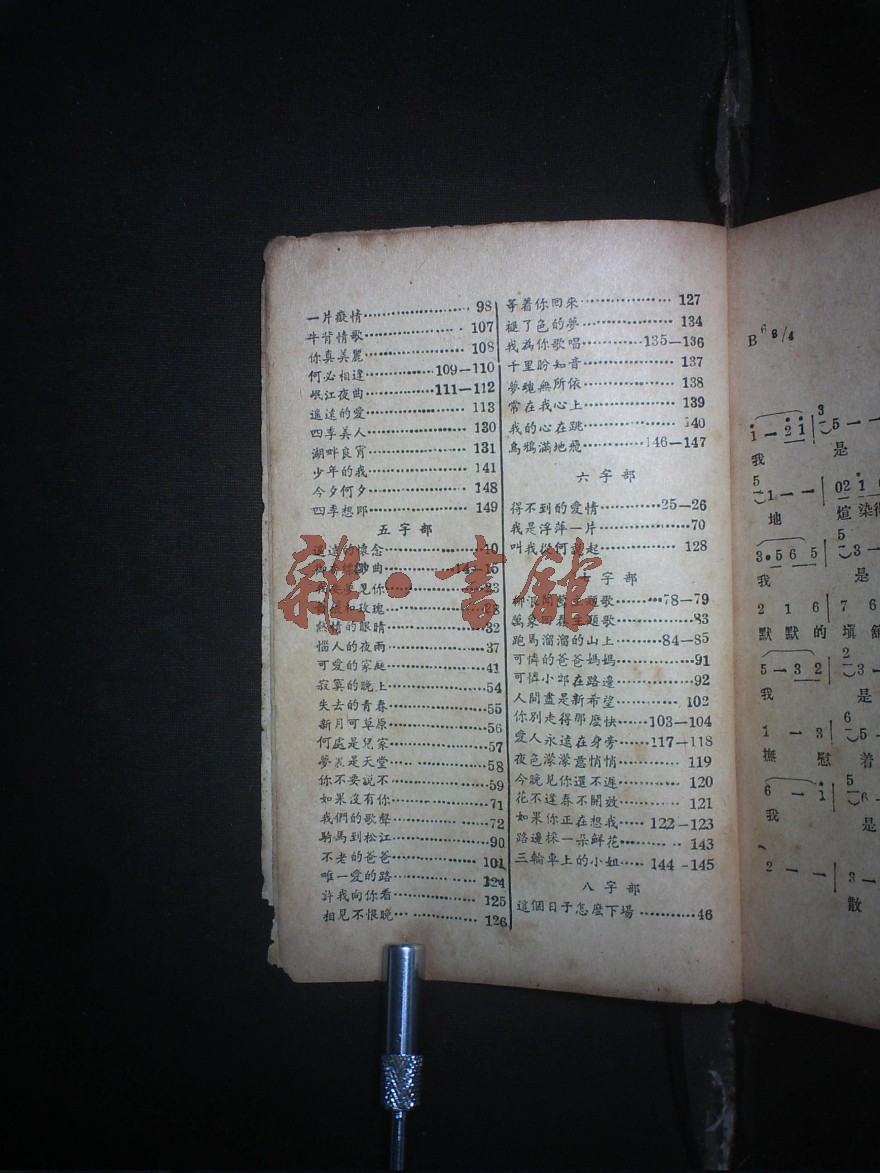 一片癡情 98
牛背情歌 107
你真美麗 108
何必相逢 109—110
岷江夜曲 111—112
遥遠的愛 113
四季美人 130
湖畔良宵 131
少年的我 141
今夕何夕 148
四季想郎 149
五字部
的懷念 10
曲 14—15
見你 23
玫瑰 28
熱情的眼睛 32
惱人的夜雨 37
可愛的家庭 41
寂寞的晚上 54
失去的青春 55
新月可草原 56
何處是兒家 57
夢裏是天堂 58
你不要說不 59
如果沒有你 71
我們的歌聲 72
騎馬到松江 90
不老的爸爸 101
唯一愛的路 124
許我向你看 125
相見不恨晚 126
等着你回來 127
褪了色的夢 134
我為你歌唱 135—136
千里盼知音 137
夢魂無所依 138
常在我心上 139
我的心在跳 140
烏鴉滿地飛 146—147
六字部
得不到的愛情 25—26
我是浮萍一片 70
叫我從何說起 128
七字部
柳浪聞鶯主題歌 78—79
萬象回春主題歌 83
跑馬溜溜的山上 84—85
可憐的爸爸媽媽 91
可憐小郎在路邊 92
人間盡是新希望 102
你別走得那麼快 103—104
愛人永遠在身旁 117—118
夜色濛濛意悄悄 119
今晚見你還不遲 120
花不逢春不開放 121
如果你正在想我 122—123
路邊採一朵鮮花 143
三輪車上的小姐 144-145
八字部
這個日子怎麼下場 46
B 6 8/4
i — 2 1 | 5 — —
我 是
5 1 — — | 02 1
地 煊 染
3·5 6 5 | 5 3 —
我 是
2 1 6 | 7 6
默 默 的 填
5 — 3 2 | 2 3 —
我 是
1 — 3 | 6 5
撫 慰 着
6 — i | 5 6
我 是
2 — — | 3 —
散
雜·書館